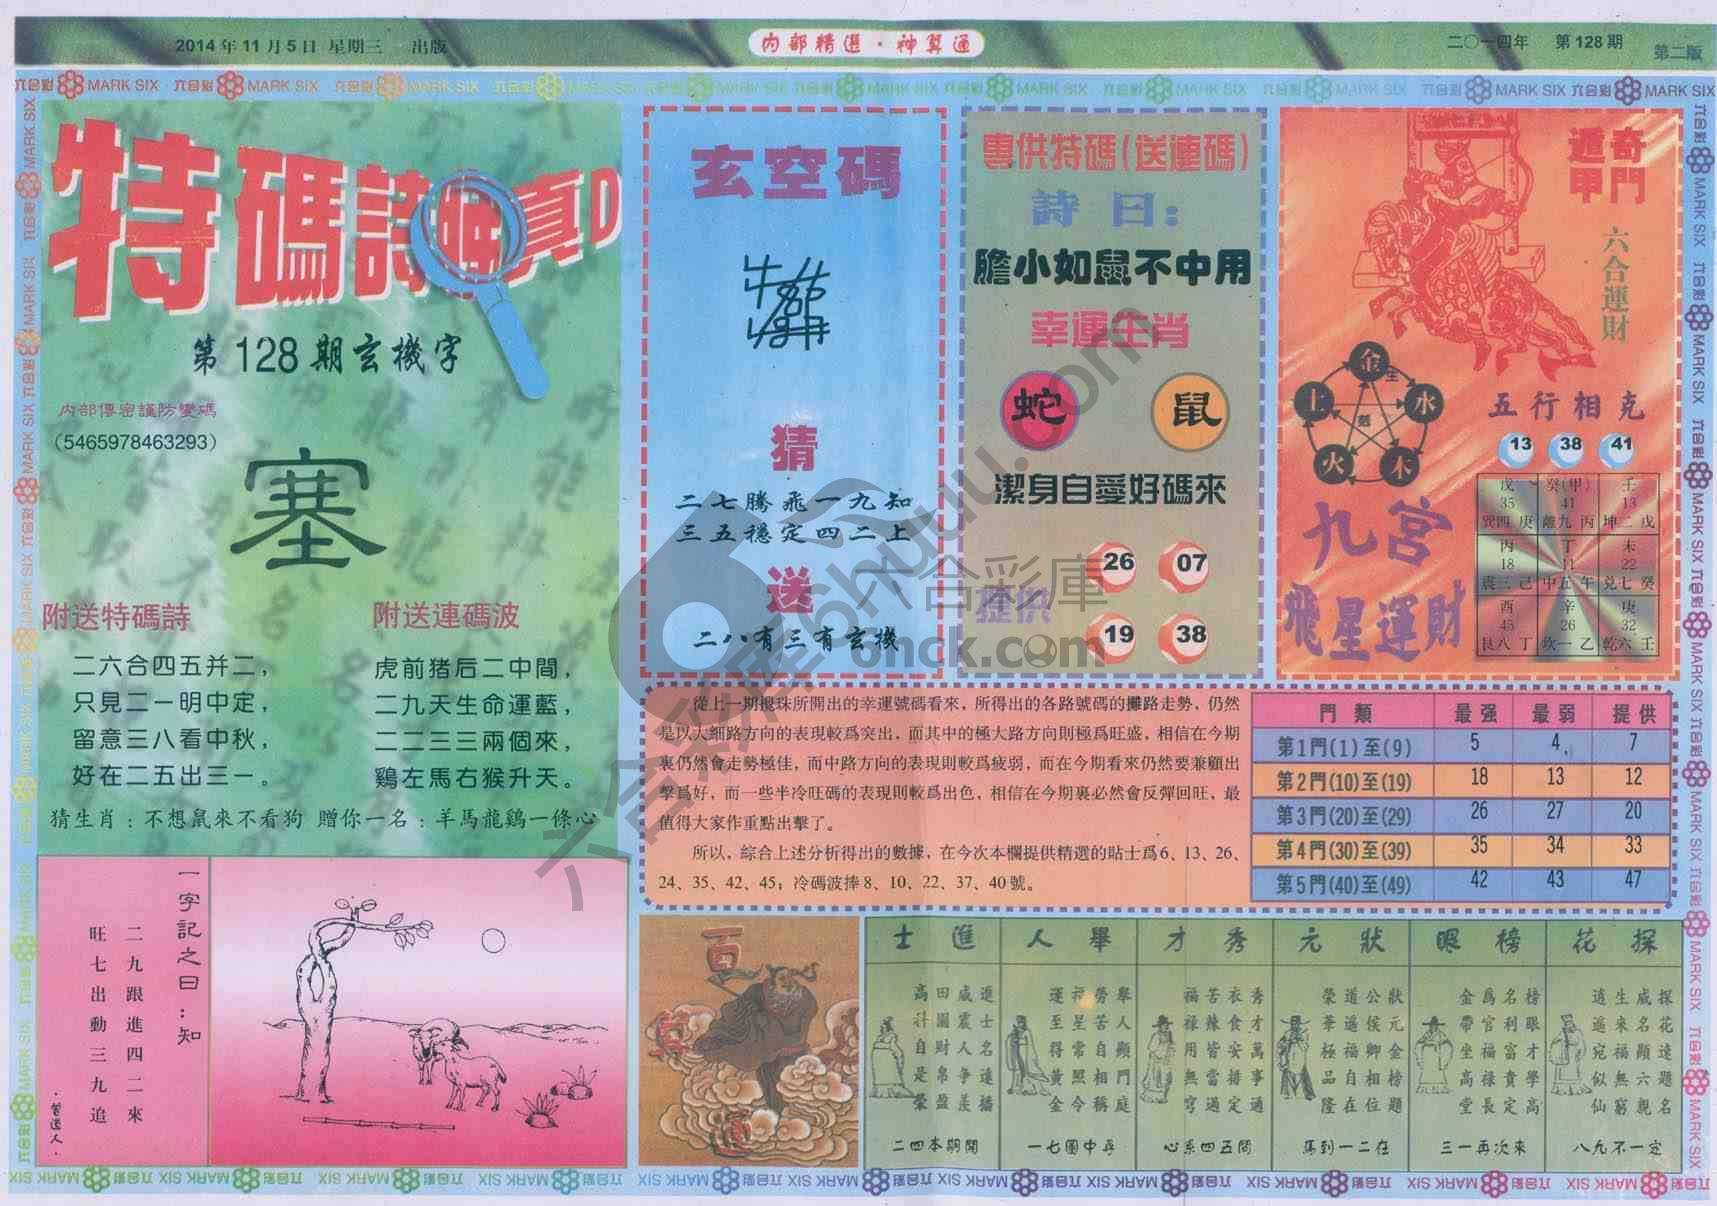 2014年11月5日 星期三 出版
内部精選·神算通
二〇一四年 第128期
第二版
六合彩 MARK SIX 六合彩 MARK SIX 六合彩 MARK SIX
特碼詩 真D
第128期玄機字
内部傳密謹防變碼
(5465978463293)
塞
附送特碼詩
二六合四五并二，
只見二一明中定，
留意三八看中秋，
好在二五出三一。
附送連碼波
虎前猪后二中間，
二九天生命運藍，
二二三三兩個來，
鷄左馬右猴升天。
猜生肖：不想鼠來不看狗 贈你一名：羊馬龍鷄一條心
一字記之曰：知
二九跟進四二來
旺七出動三九追
·曾道人·
玄空碼
猜
二七騰飛一九知
三五穩定四二上
送
二八有三有玄機
專供特碼(送連碼)
詩曰：
膽小如鼠不中用
幸運生肖
蛇 鼠
潔身自愛好碼來
提供
26 07
19 38
奇門
遁甲
六合運財
金 水 木 火 土
五行相克
13 38 41
九宮
飛星運財
戊 癸(甲) 壬
35 41 13
巽四庚 離九丙 坤二戊
丙 丁 未
18 11 22
震三己 中五午 兌七癸
酉 辛 庚
45 26 32
艮八丁 坎一乙 乾六壬
從上一期攪珠所開出的幸運號碼看來，所得出的各路號碼的攤路走勢，仍然
是以大細路方向的表現較爲突出，而其中的極大路方向則極爲旺盛，相信在今期
裏仍然會走勢極佳，而中路方向的表現則較爲疲弱，而在今期看來仍然要兼顧出
擊爲好，而一些半冷旺碼的表現則較爲出色，相信在今期裏必然會反彈回旺，最
值得大家作重點出擊了。
所以，綜合上述分析得出的數據，在今次本欄提供精選的貼士爲6、13、26、
24、35、42、45；冷碼波捧8、10、22、37、40號。
門類 最强 最弱 提供
第1門(1)至(9) 5 4 7
第2門(10)至(19) 18 13 12
第3門(20)至(29) 26 27 20
第4門(30)至(39) 35 34 33
第5門(40)至(49) 42 43 47
士進
進士名遠播
威震人争羡
田園財帛盈
高科自是榮
二四本期開
人舉
舉人顯門庭
勞苦自相稱
福星常照令
運至得黃金
一七圍中尋
才秀
秀才萬事通
衣食安排定
苦辣皆當過
福祿用無窮
心系四五問
元狀
狀元金榜題
公侯卿相位
道遥福自在
榮華極品隆
馬到一二在
眼榜
榜眼才學高
名利富貴定
爲官福祿長
金帶坐高堂
三一再次來
花探
探花遠題名
威名顯六親
生來福無窮
逍遥宛似仙
八九不一定
六合彩庫
onck.com